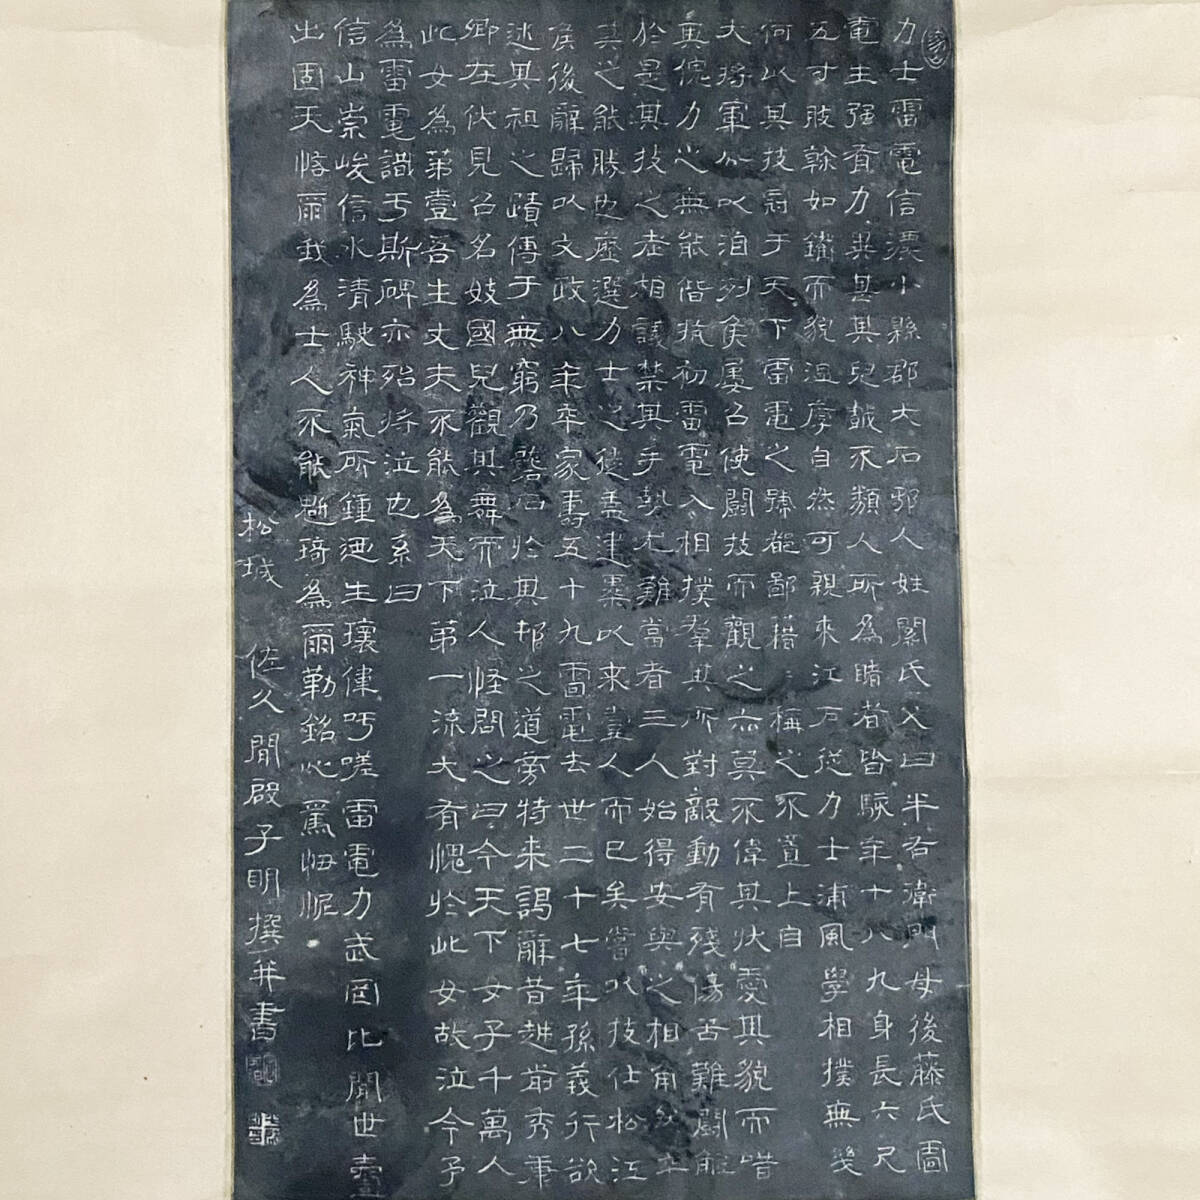 力士雷電信濃小縣郡大石邨人姓關氏父曰半右衛門母後藤氏雷
電生强有力異甚其兒試不類人所為睹者皆駭年十八九身長六尺
五寸肢幹如鐵而貌溫厚自然可親來江戶從力士浦風學相撲無幾
何以其技冠于天下雷電之號籍籍稱之不置上自
大將軍公以洎列矦屢召使鬬技而觀之亦莫不偉其狀愛其貌而惜
其儔力之無能偕敵初雷電入相撲羣其所對敵動有殘傷苦難鬬觧
於是其技之者相議禁其手勢尤難當者三人始得安與之相角然卒
莫之能勝也歷選力士之徒蓋建櫜以来壹人而已矣嘗以技仕松江
矦後辭歸以文政八年卒家壽五十九雷電去世二十七年孫義行欲
述其祖之蹟傳于無窮乃礱石於其邨之道旁特来謁辭昔豊秀
卿在伏見召名妓國兒觀其舞而泣人怪問之曰今天下女子千萬人
此女為第壹吾生丈夫不能為天下第一流大有愧於此女故泣今予
為雷電識于斯碑亦殆將泣也系曰
信山崇峻信水清駛神氣所鍾迺生瓌偉吁嗟雷電力武罔比聞世壹
出固天愘爾我為士人不能魁琦為爾勒銘心焉悔怩
松城 佐久閒啟子明撰并書